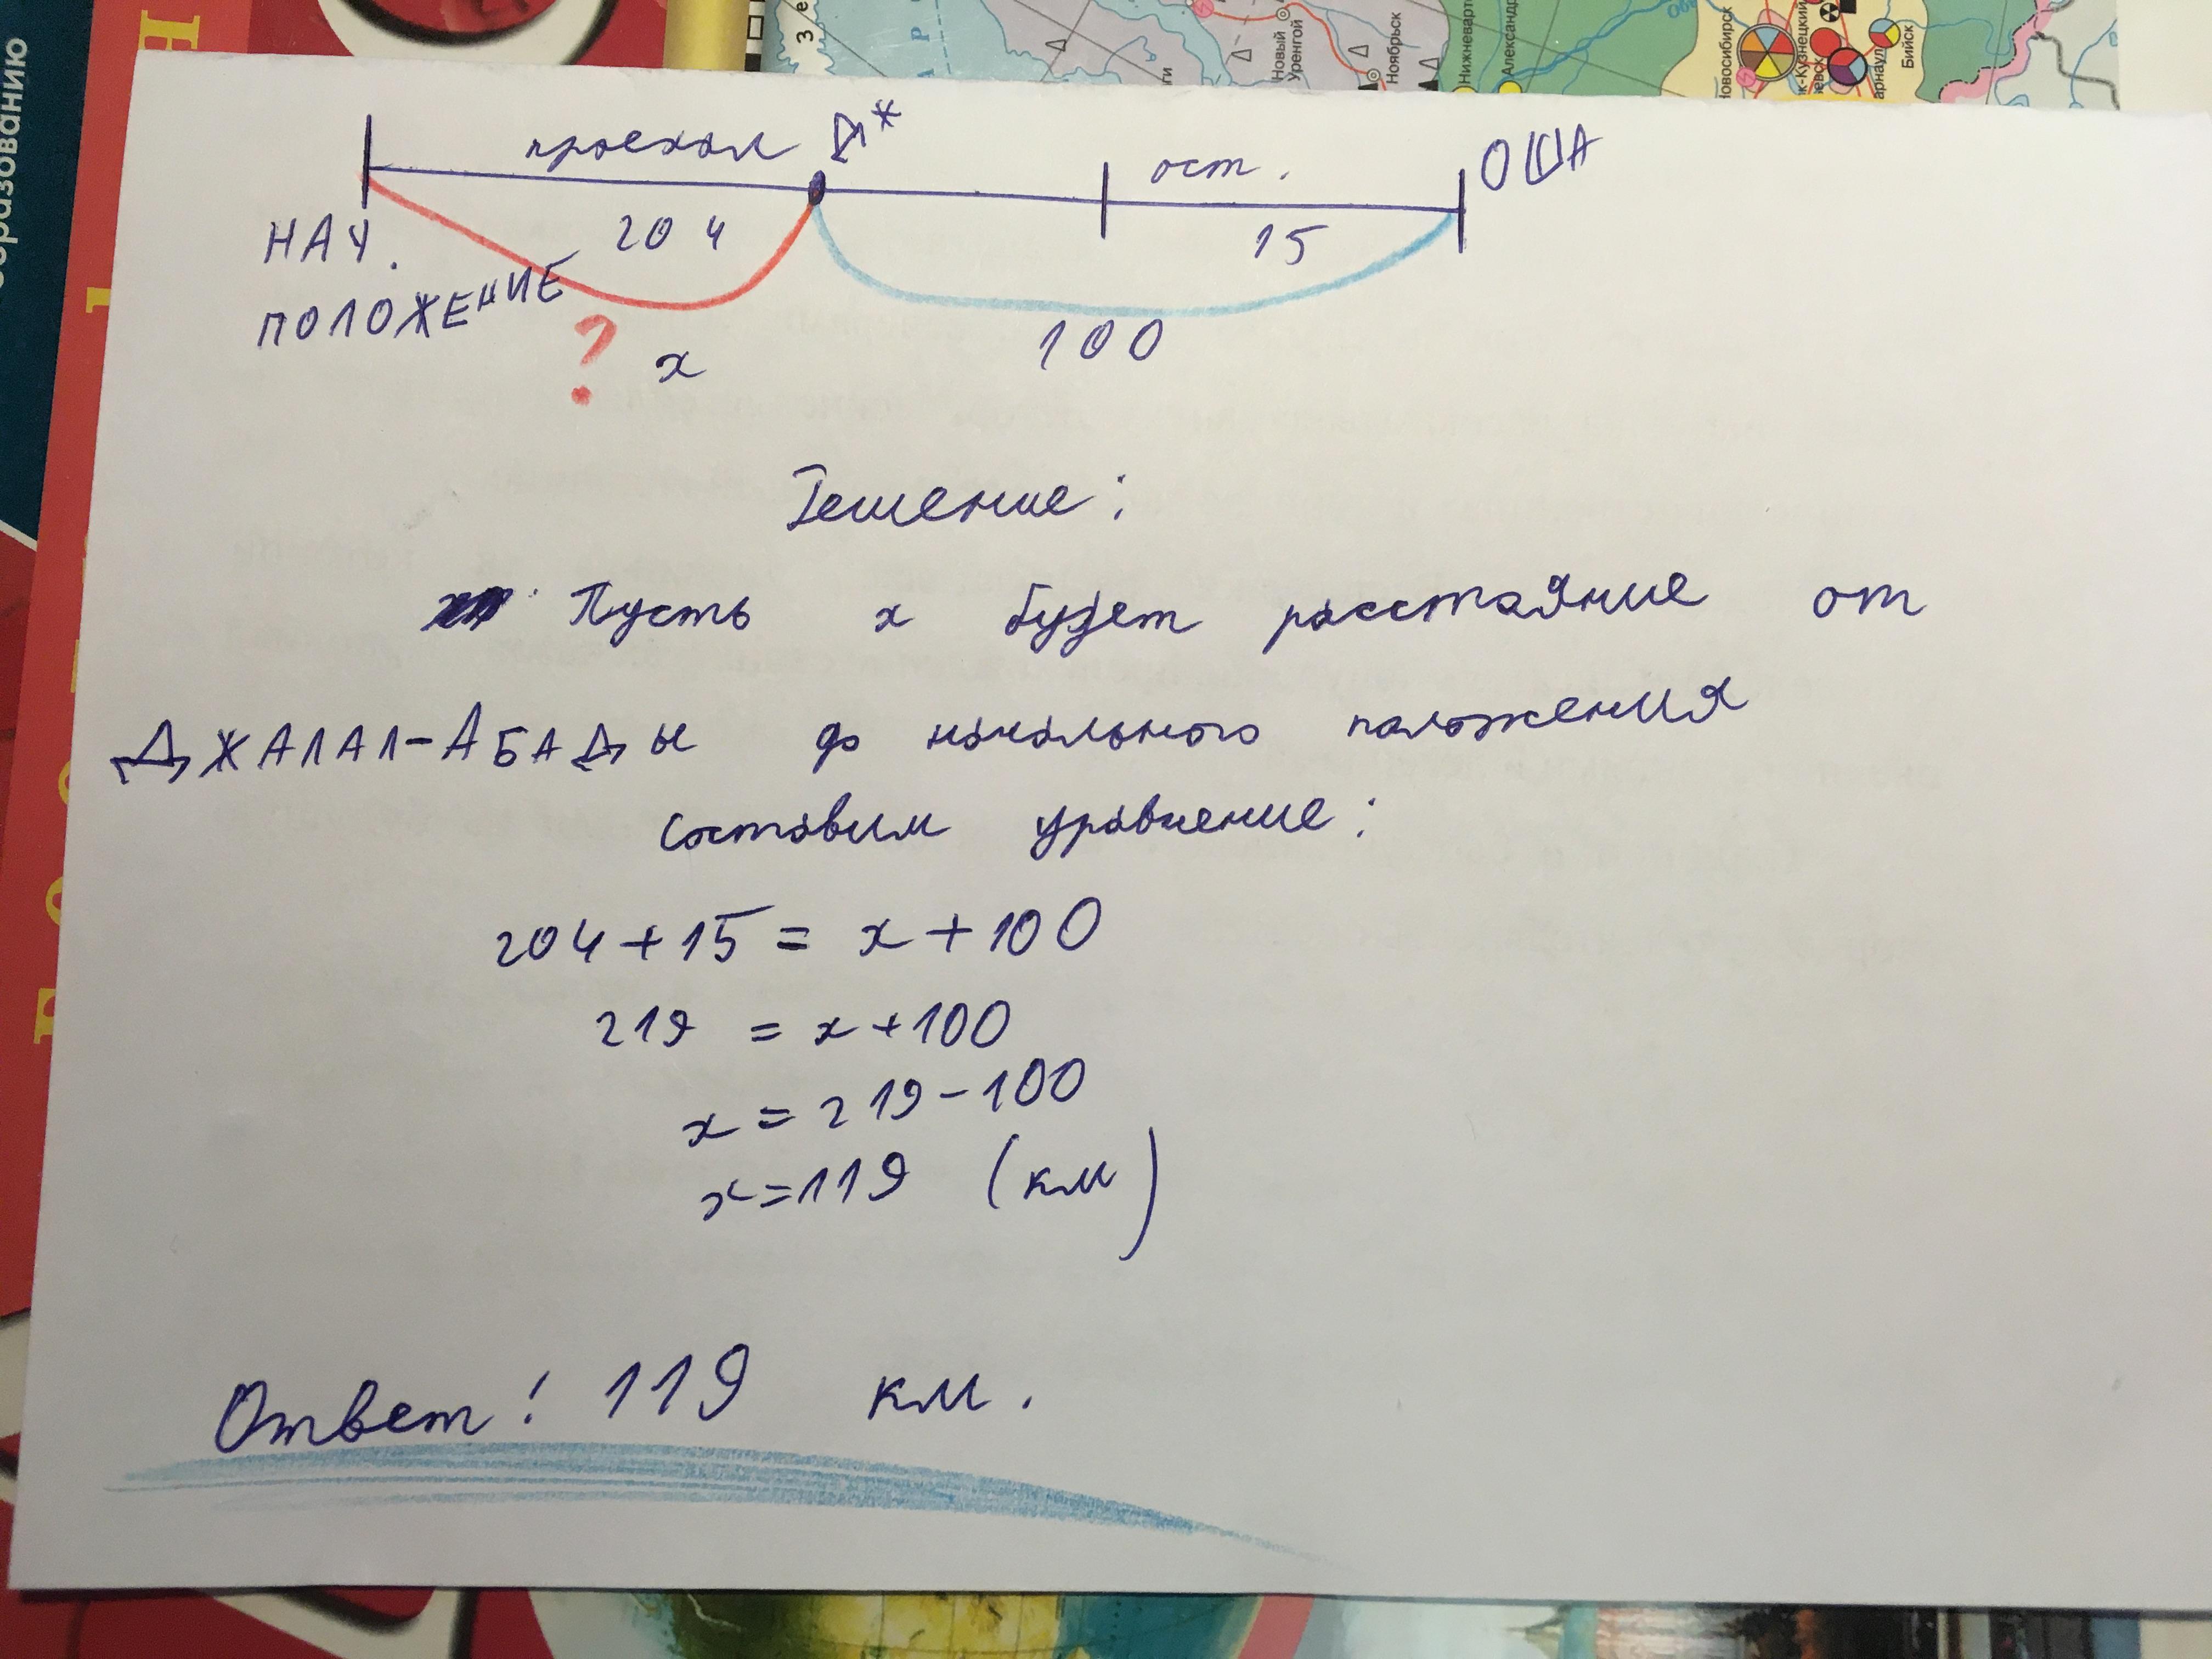 образованию
Новый
Уренгой
Ноябрьск
Нижневарт
Александр
Новосибирск
к-Кузнецкий
Бийск
проехал Д*
ост.
ОША
НАЧ.
204
15
ПОЛОЖЕНИЕ
? х
100
Решение:
Пусть х будет расстаяние от
ДЖАЛАЛ-АБАДЫ до начального положения
составим уравнение:
204+15= х+100
219 = х+100
х=219-100
х=119 (км)
Ответ! 119 км.